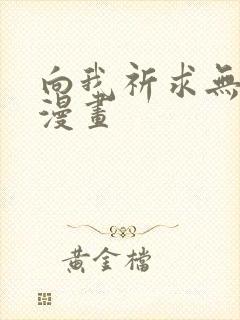 向我祈求無
漫畫
黃金檔